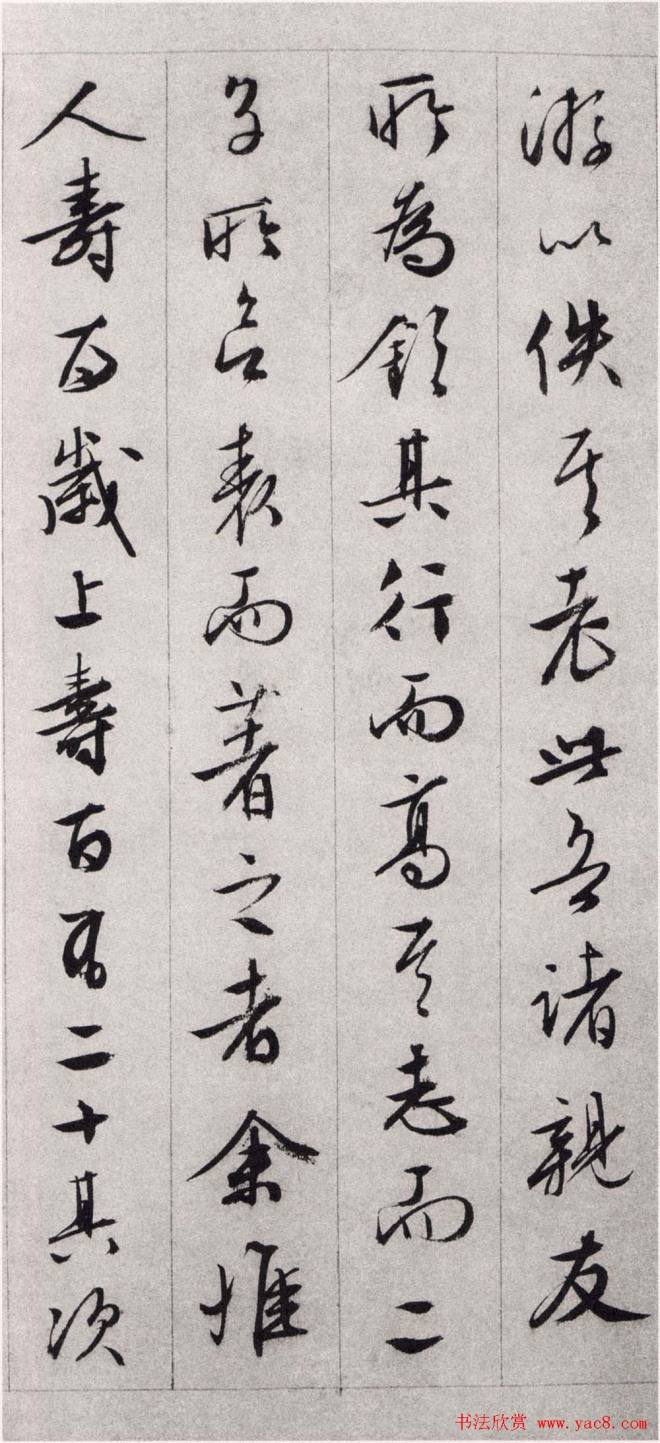 游以佚其老此吾諸親友
所為領其行而高其志而二
子所宜表而著之者余惟
人壽百歲上壽百有二十其次
书法欣赏 www.yac8.com